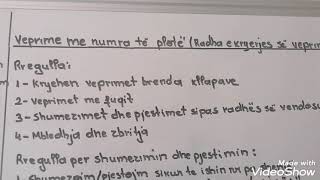 Veprime me numra të plotë (Radha e kryerjes së veprim
Rregulla:
1- Kryehen veprimet brenda kllapave
2- Veprimet me fuqit
3- Shumezimet dhe pjestimet sipas radhës së vendosu
4- Mbledhja dhe zbritja
Rregulla per shumezimin dhe pjestimin:
1- Shumezojm/pjestojm sikun te ishin nr
Made with
VideoShow